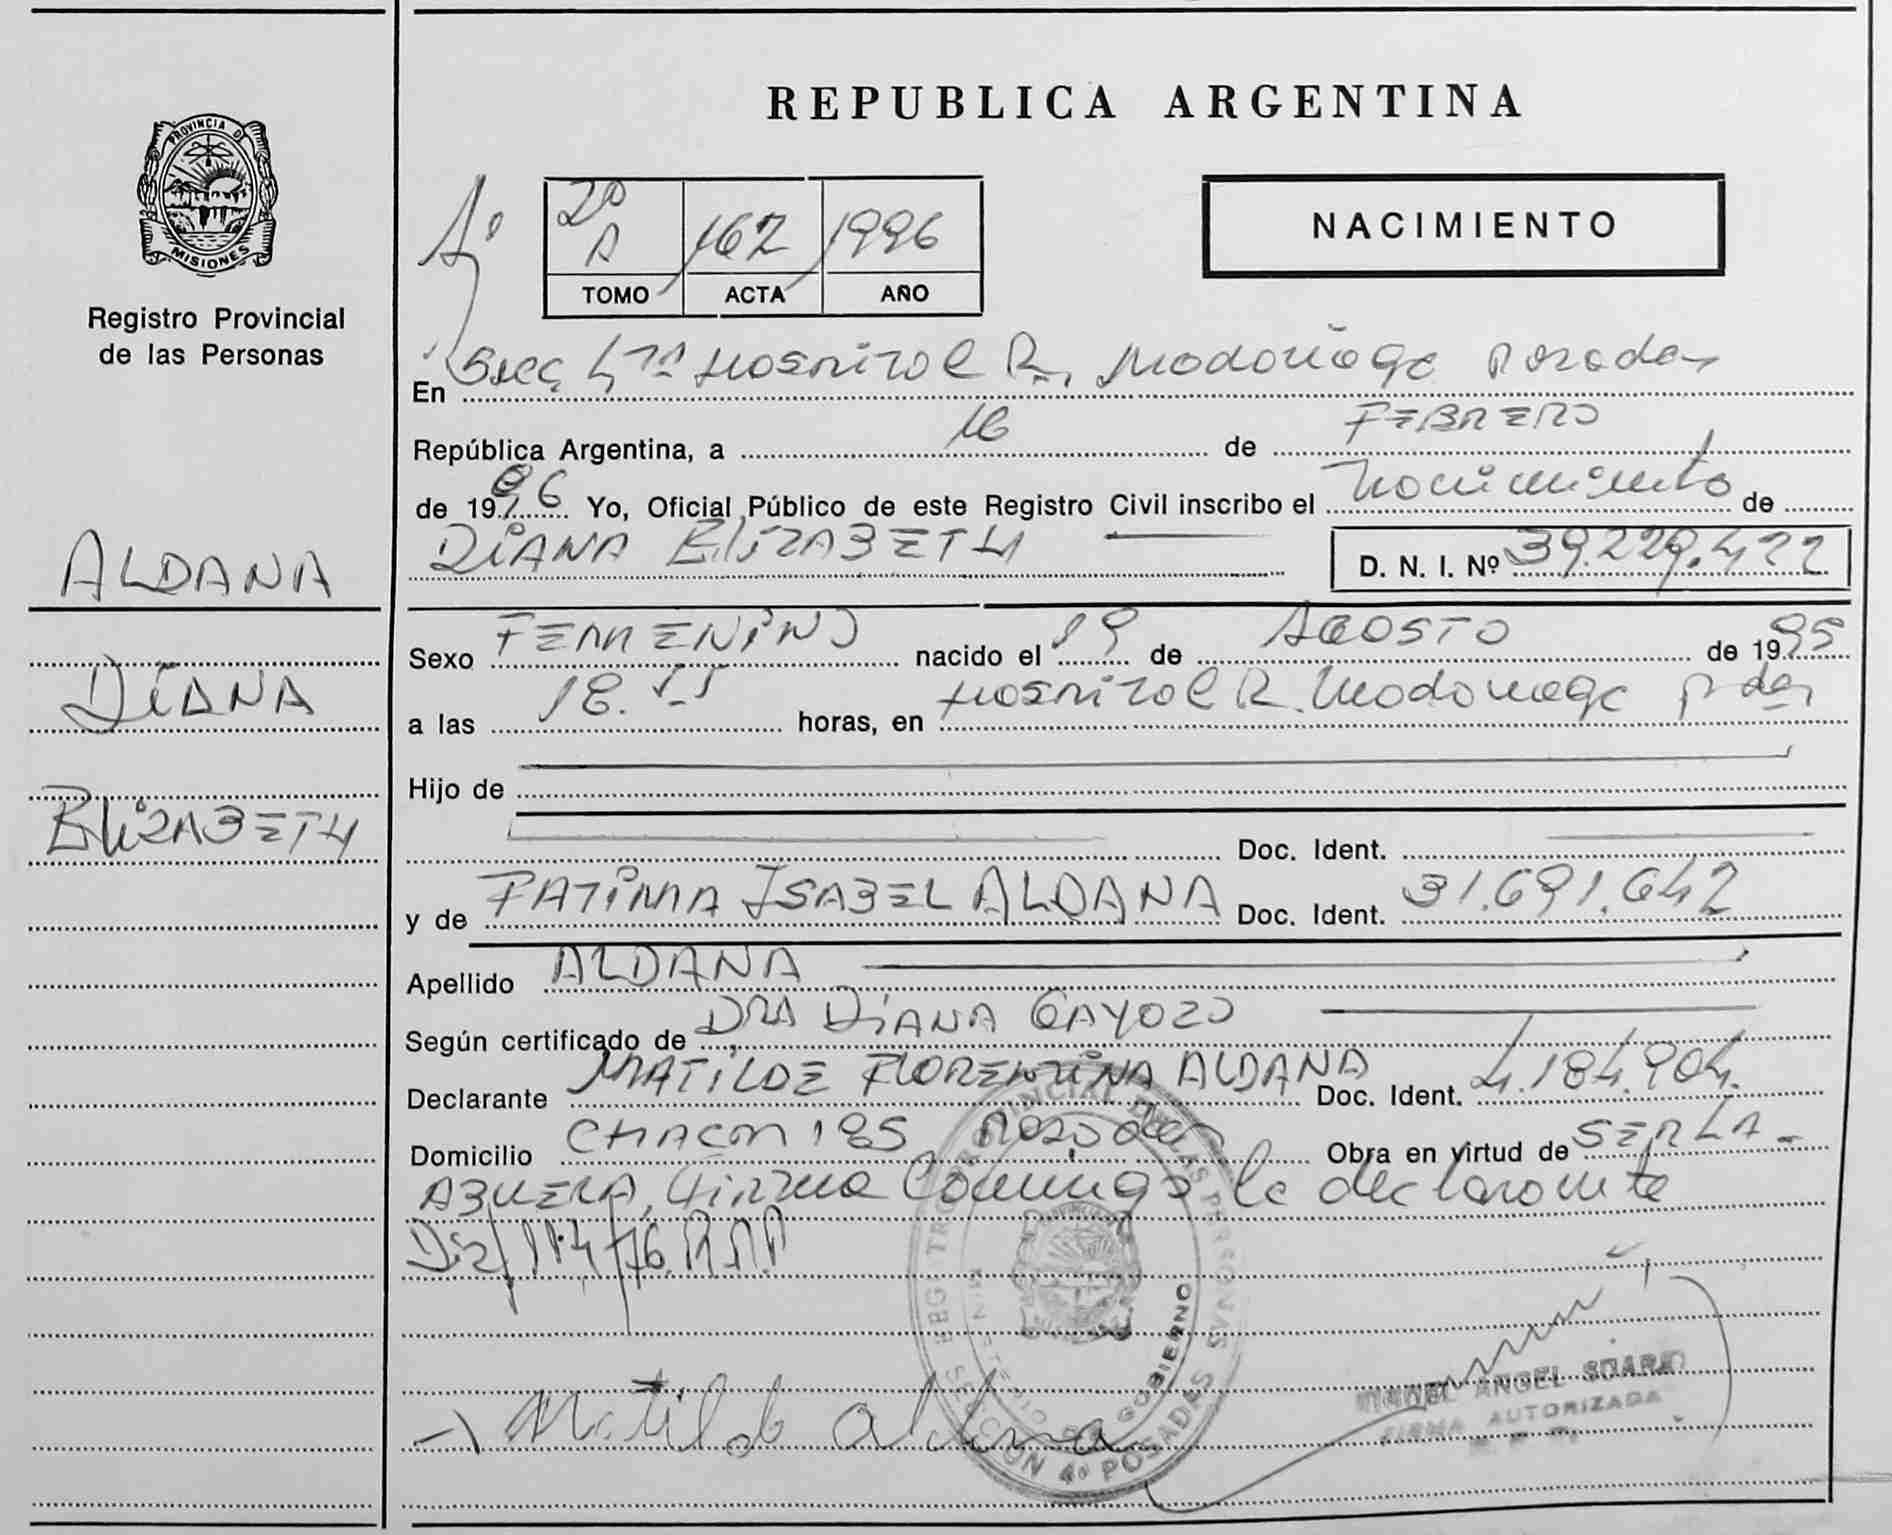 REPUBLICA ARGENTINA
PROVINCIA DE MISIONES
Registro Provincial
de las Personas
ALDANA
DIANA
ELIZABETH
Aº
2º A 162 1996
TOMO ACTA AÑO
NACIMIENTO
En Secc 4ta Hospital R. Madariaga Posadas
República Argentina, a 16 de FEBRERO
de 1996 Yo, Oficial Público de este Registro Civil inscribo el Nacimiento de
DIANA ELIZABETH D. N. I. Nº 39.229.422
Sexo FEMENINO nacido el 19 de AGOSTO de 1995
a las 18. horas, en Hospital R. Madariaga Pdas
Hijo de
Doc. Ident.
y de FATIMA ISABEL ALDANA Doc. Ident. 31.691.642
Apellido ALDANA
Según certificado de DRA DIANA GAYOZO
Declarante MATILDE FLORENTINA ALDANA Doc. Ident. 4.184.904.
Domicilio CHACON 185 Posadas Obra en virtud de SER LA
ABUELA, Firma Conmigo la declarante
Diz/114/76.R.P.P
Matilde aldana
REGISTRO PROVINCIAL DE LAS PERSONAS
MINISTERIO DE GOBIERNO
SECCION 4º POSADAS
ANGEL SUAREZ
FIRMA AUTORIZADA